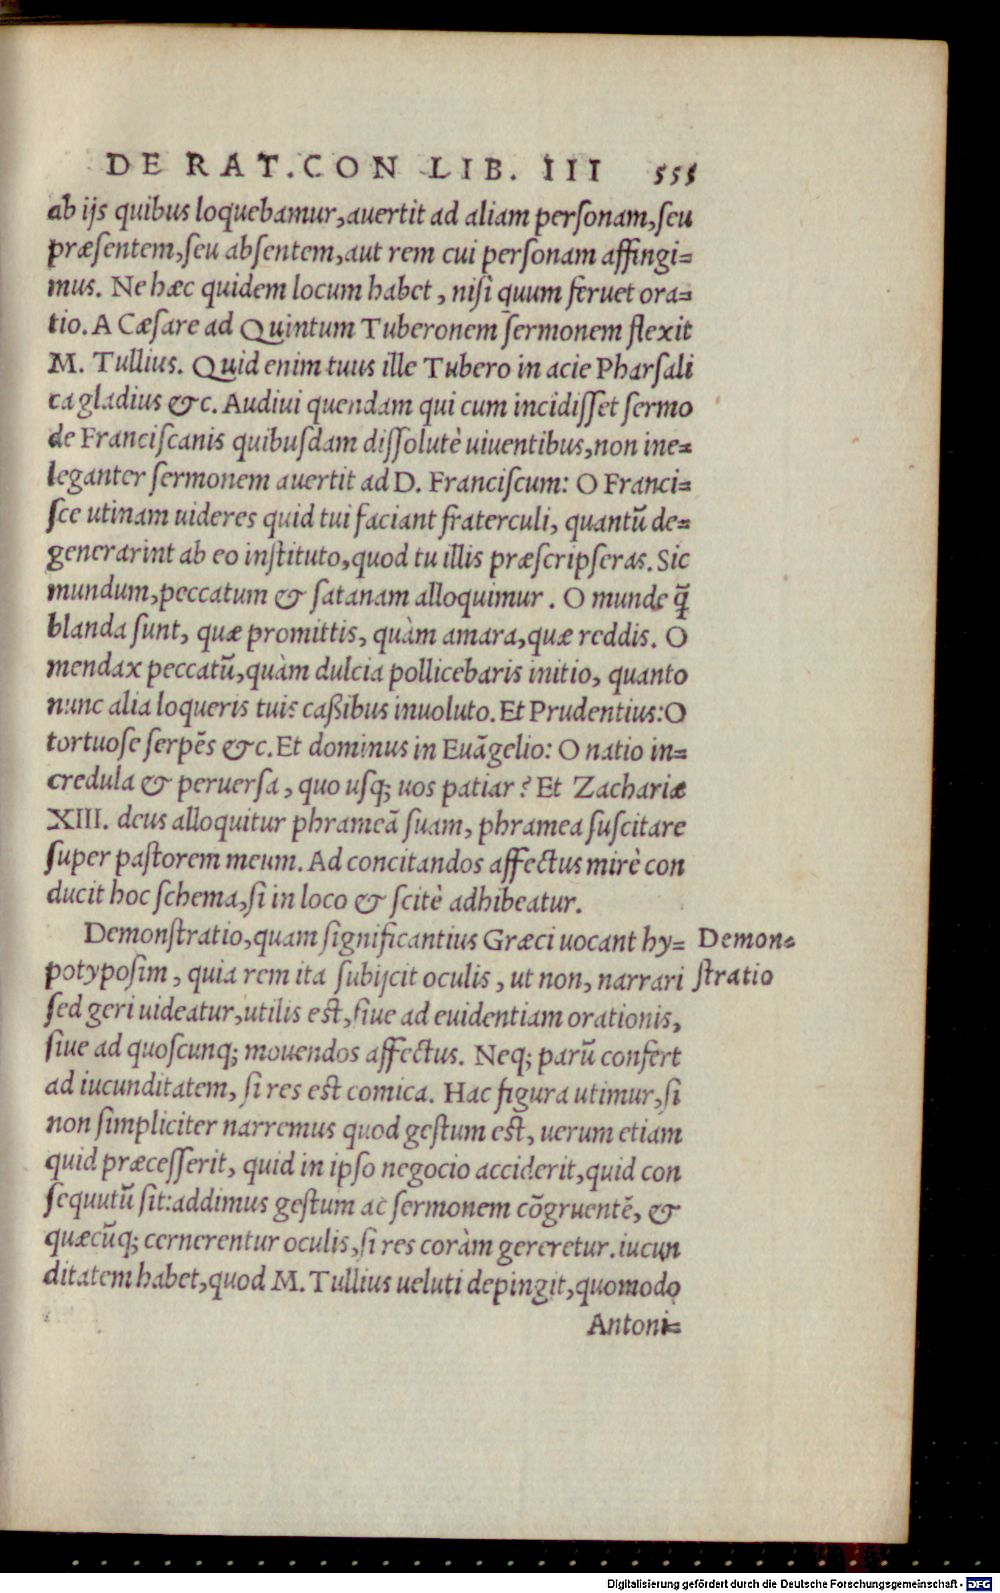 DE RAT. CON LIB. III 555
ab ijs quibus loquebamur, auertit ad aliam personam, seu
præsentem, seu absentem, aut rem cui personam affingi=
mus. Ne hæc quidem locum habet, nisi quum feruet ora=
tio. A Cæsare ad Quintum Tuberonem sermonem flexit
M. Tullius. Quid enim tuus ille Tubero in acie Pharsali
ca gladius &c. Audiui quendam qui cum incidisset sermo
de Franciscanis quibusdam dissolutè uiuentibus, non ine=
leganter sermonem auertit ad D. Franciscum: O Franci=
sce utinam uideres quid tui faciant fraterculi, quantũ de=
generarint ab eo instituto, quod tu illis præscripseras. Sic
mundum, peccatum & satanam alloquimur. O munde q̃
blanda sunt, quæ promittis, quàm amara, quæ reddis. O
mendax peccatũ, quàm dulcia pollicebaris initio, quanto
nunc alia loqueris tuis caßibus inuoluto. Et Prudentius: O
tortuose serpẽs &c. Et dominus in Euãgelio: O natio in=
credula & peruersa, quo usq; uos patiar? Et Zachariæ
XIII. deus alloquitur phrameã suam, phramea suscitare
super pastorem meum. Ad concitandos affectus mirè con
ducit hoc schema, si in loco & scitè adhibeatur.
Demonstratio, quam significantius Græci uocant hy=
potyposim, quia rem ita subijcit oculis, ut non, narrari
sed geri uideatur, utilis est, siue ad euidentiam orationis,
siue ad quoscunq; mouendos affectus. Neq; parũ confert
ad iucunditatem, si res est comica. Hac figura utimur, si
non simpliciter narremus quod gestum est, uerum etiam
quid præcesserit, quid in ipso negocio acciderit, quid con
sequutũ sit: addimus gestum ac sermonem cõgruentẽ, &
quæcũq; cernerentur oculis, si res coràm gereretur. iucun
ditatem habet, quod M. Tullius ueluti depingit, quomodo
Antoni=
Demon=
stratio
Digitalisierung gefördert durch die Deutsche Forschungsgemeinschaft - DFG